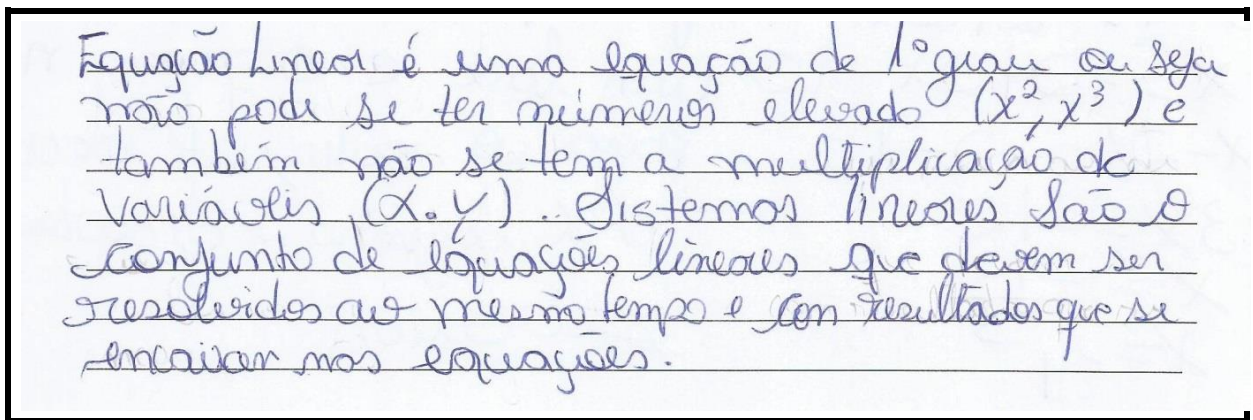 Equação Linear é uma equação de 1° grau ou seja
não pode se ter números elevado (x², x³) e
também não se tem a multiplicação de
variáveis (x.y). Sistemas lineares são o
conjunto de equações lineares que devem ser
resolvidos ao mesmo tempo e com resultados que se
encaixar nas equações.